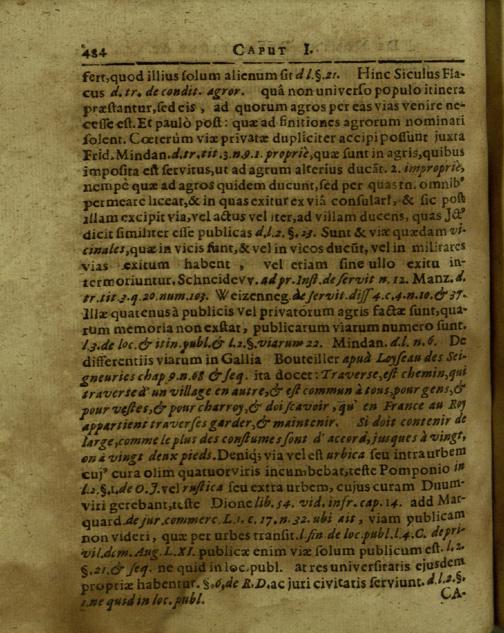 484 CAPUT I.
fert, quod illius solum alienum sit d l. §. 21. Hinc Siculus Fla-
cus d. tr. de condit. agror. quâ non universo populo itinera
præstantur, sed eis, ad quorum agros per eas vias venire ne-
cesse est. Et paulò post: quæ ad finitiones agrorum nominati
solent. Cœterùm viæ privatæ dupliciter accipi possunt juxta
Frid. Mindan. d. tr. tit. 3. n. 9. 1. propriè, quæ sunt in agris, quibus
imposita est servitus, ut ad agrum alterius ducāt. 2. impropriè,
nempè quæ ad agros quidem ducunt, sed per quas tn. omnibꝰ
permeare liceat, & in quas exitur ex viâ consulari, & sic post
illam excipit via, vel actus vel iter, ad villam ducens, quas JCtꝰ
dicit similiter esse publicas d. l. 2. §. 23. Sunt & viæ quædam vi-
cinales, quæ in vicis sunt, & vel in vicos ducūt, vel in militares
vias exitum habent, vel etiam sine ullo exitu in-
termoriuntur. Schneidevv. ad pr. Inst. de servit n. 12. Manz. d.
tr. tit 3. q. 20. num. 103. Weizenneg. de servit. diss 4. c. 4. n. 10. & 37.
Illæ quatenus à publicis vel privatorum agris factæ sunt, qua-
rum memoria non exstat, publicarum viarum numero sunt.
l. 3. de loc. & itin. publ. & l. 2. §. viarum 22. Mindan. d. l. n. 6. De
differentiis viarum in Gallia Bouteiller apud Loyseau des Sei-
gneuries chap 9. n. 68 & seq. ita docet: Traverse, est chemin, qui
traverse d' un village en autre, & est commun à tous, pour gens, &
pour vestes, & pour charroy, & doi scavoir, qu' en France au Roy
appartient traverses garder, & maintenir. Si doit contenir de
large, comme le plus des constumes sont d' accord, jusques à vingt,
on à vingt deux pieds. Deniq; via vel est urbica seu intra urbem
cujꝰ cura olim quatuorviris incumbebat, teste Pomponio in
l. 2. §. 1. de O. J. vel rustica seu extra urbem, cujus curam Duum-
viri gerebant, teste Dione lib. 54. vid. infr. cap. 14. add Mar-
quard. de jur. commerc. L. 1. c. 17. n. 32. ubi ait, viam publicam
non videri, quæ per urbes transit. l. fin. de loc. publ. l. 4. C. de pri-
vil. dom. Aug. L. XI. publicæ enim viæ solum publicum est. l. 2.
§. 21. & seq. ne quid in loc. publ. at res universitatis ejusdem
propriæ habentur. §. 6. de R. D. ac juri civitatis serviunt. d. l. 2. §.
1. ne quid in loc. publ.
CA-